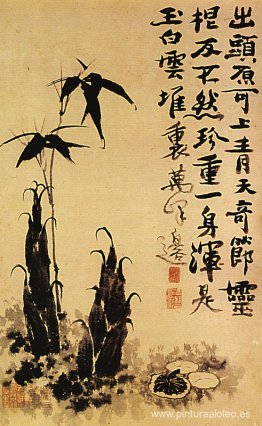 出頭原可上青天奇節靈
根反不然珍重一身渾是
玉白雲堆裏萬峯邊
www.pinturaaloleo.es